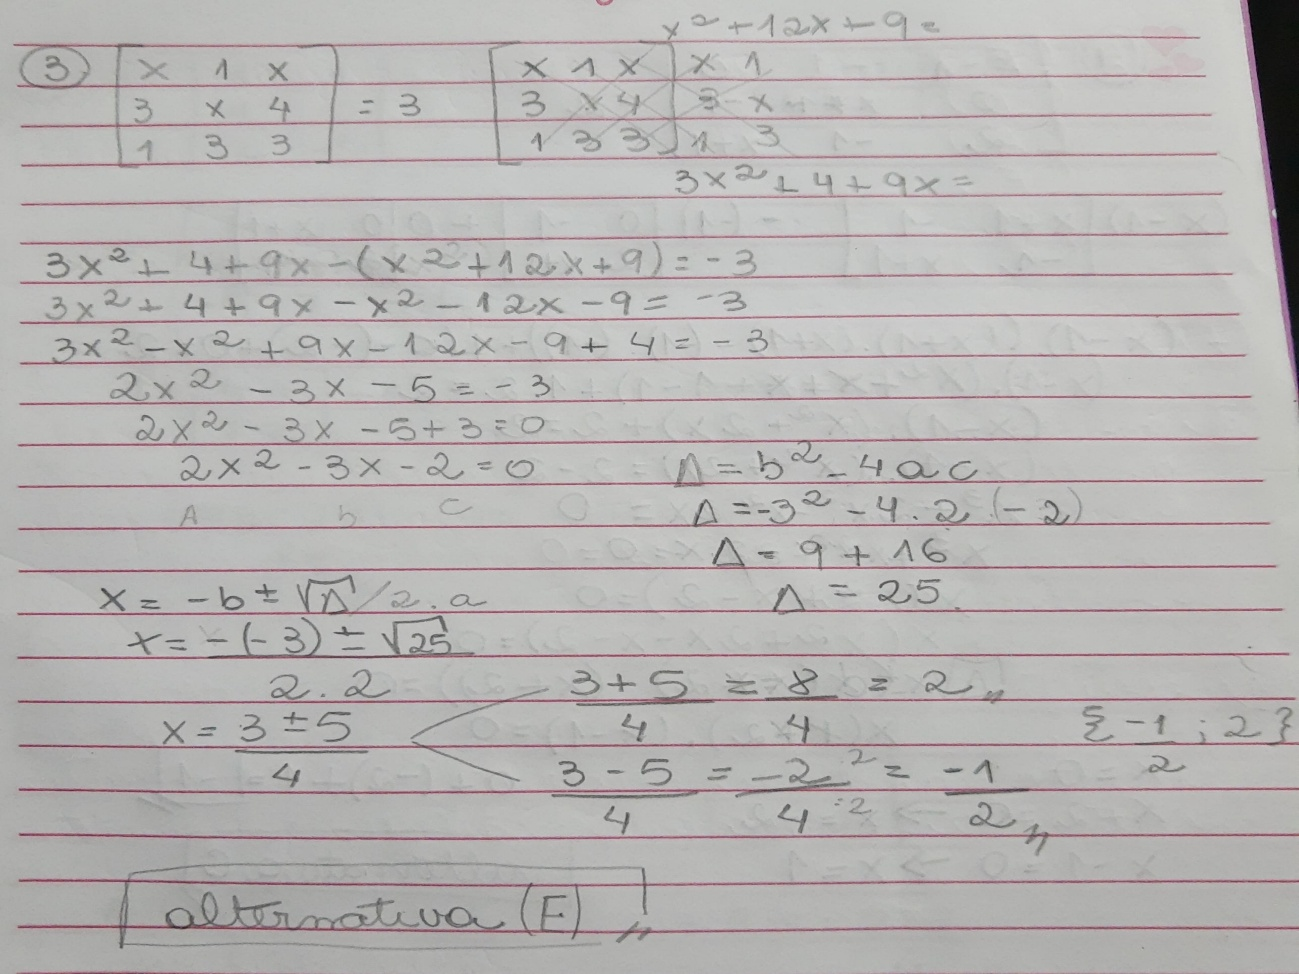 x² + 12x + 9 =
3 x 1 x
3 x 4 = 3
1 3 3
x 1 x x 1
3 x 4 3 x
1 3 3 1 3
3x² + 4 + 9x =
3x² + 4 + 9x - (x² + 12x + 9) = -3
3x² + 4 + 9x - x² - 12x - 9 = -3
3x² - x² + 9x - 12x - 9 + 4 = -3
2x² - 3x - 5 = -3
2x² - 3x - 5 + 3 = 0
2x² - 3x - 2 = 0
A b c
Δ = b² - 4ac
Δ = -3² - 4 . 2 (-2)
Δ = 9 + 16
Δ = 25
x = -b ± √Δ / 2.a
x = -(-3) ± √25
2.2
x = 3 ± 5
4
3 + 5 = 8 = 2
4 4
3 - 5 = -2 :2 = -1
4 :2 2
{ -1 ; 2 }
2
alternativa (E)